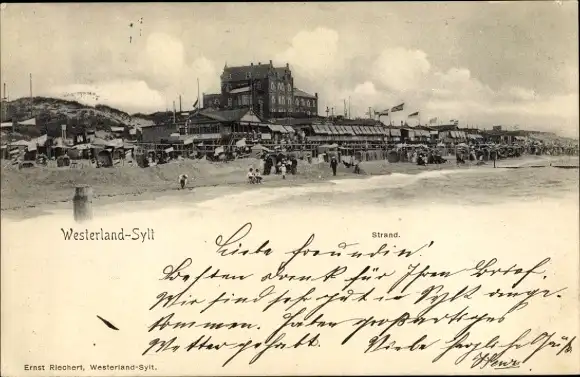 Westerland-Sylt
Strand.
Liebe Freundin!
Besten Dank für Ihren Brief.
Wir sind sehr gut in Sylt ange-
kommen. Haben großartiges
Wetter gehabt. Viele herzliche Grüße
Ernst Riechert, Westerland-Sylt.